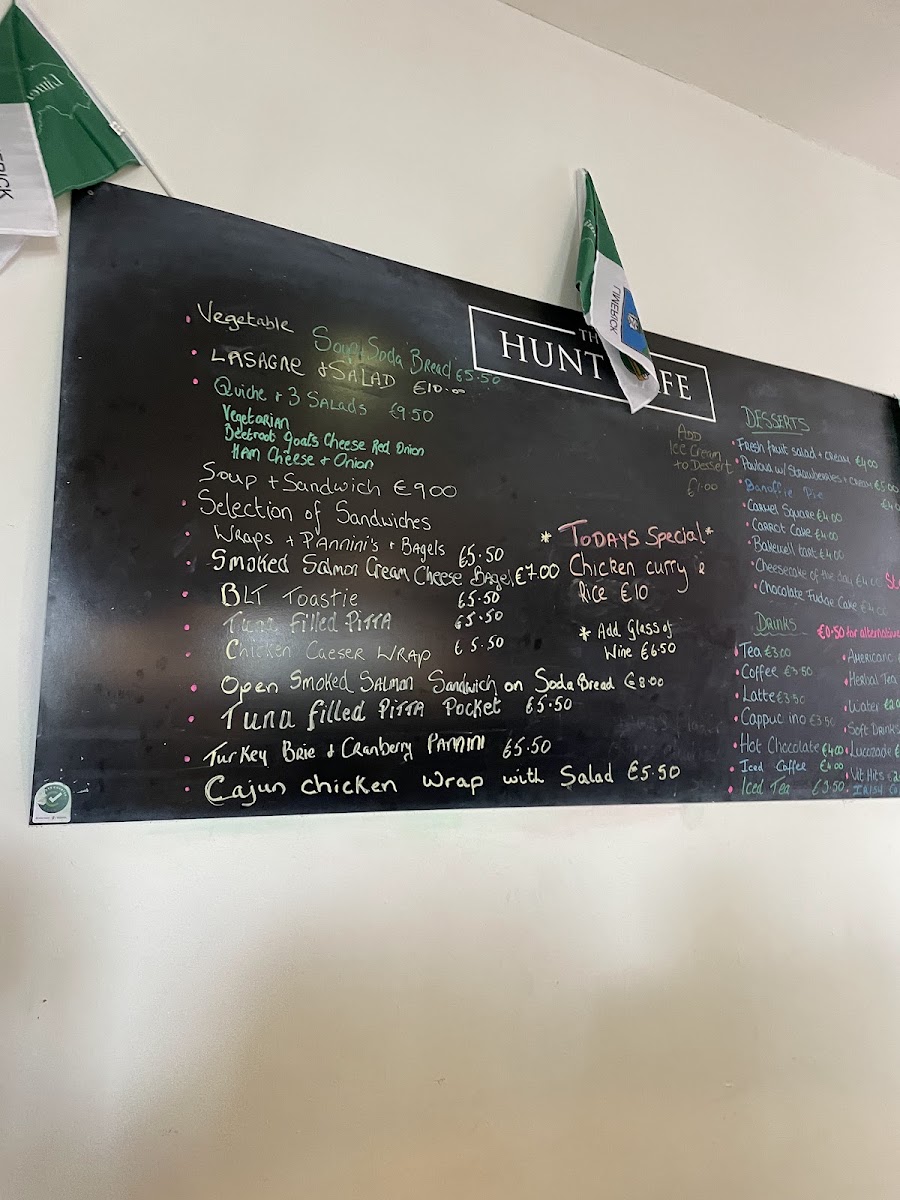 LIMERICK
THE
HUNT FE
Vegetable Soup Soda Bread €5.50
LASAGNE & SALAD €10.00
Quiche + 3 SALADS €9.50
Vegetarian
Beetroot Goats Cheese Red Onion
HAM Cheese + Onion
Soup + Sandwich €900
Selection of Sandwiches
Wraps + PAnnini's + Bagels €5.50
Smoked Salmon Cream Cheese Bagel €7.00
BLT Toastie €5.50
Tuna Filled PITTA €5.50
Chicken Caeser WRAP €5.50
Open Smoked Salmon Sandwich on Soda Bread €8.00
Tuna filled PITTA Pocket €5.50
Turkey Brie & Cranberry PANNINI €5.50
Cajun chicken wrap with Salad €5.50
ADD
Ice Cream
to Dessert
€1.00
* TODAYS Special *
Chicken curry &
Rice €10
* Add Glass of
Wine €6.50
DESSERTS
Fresh fruit salad + cream €4.00
Pavlova w/ Strawberries + cream €5.00
Banoffie Pie
Carmel Square €4.00
Carrot Cake €4.00
Bakewell tart €4.00
Cheesecake of the day €4.00
Chocolate Fudge Cake €4.00
DRINKS
€0.50 for alternative
Tea €3.00
Coffee €3.50
Latte €3.50
Cappuc ino €3.50
Hot Chocolate €4.00
Iced Coffee €4.00
Iced Tea €3.50
Americano
Herbal Tea
Water
Soft Drinks
Lucozade
Vit Hits